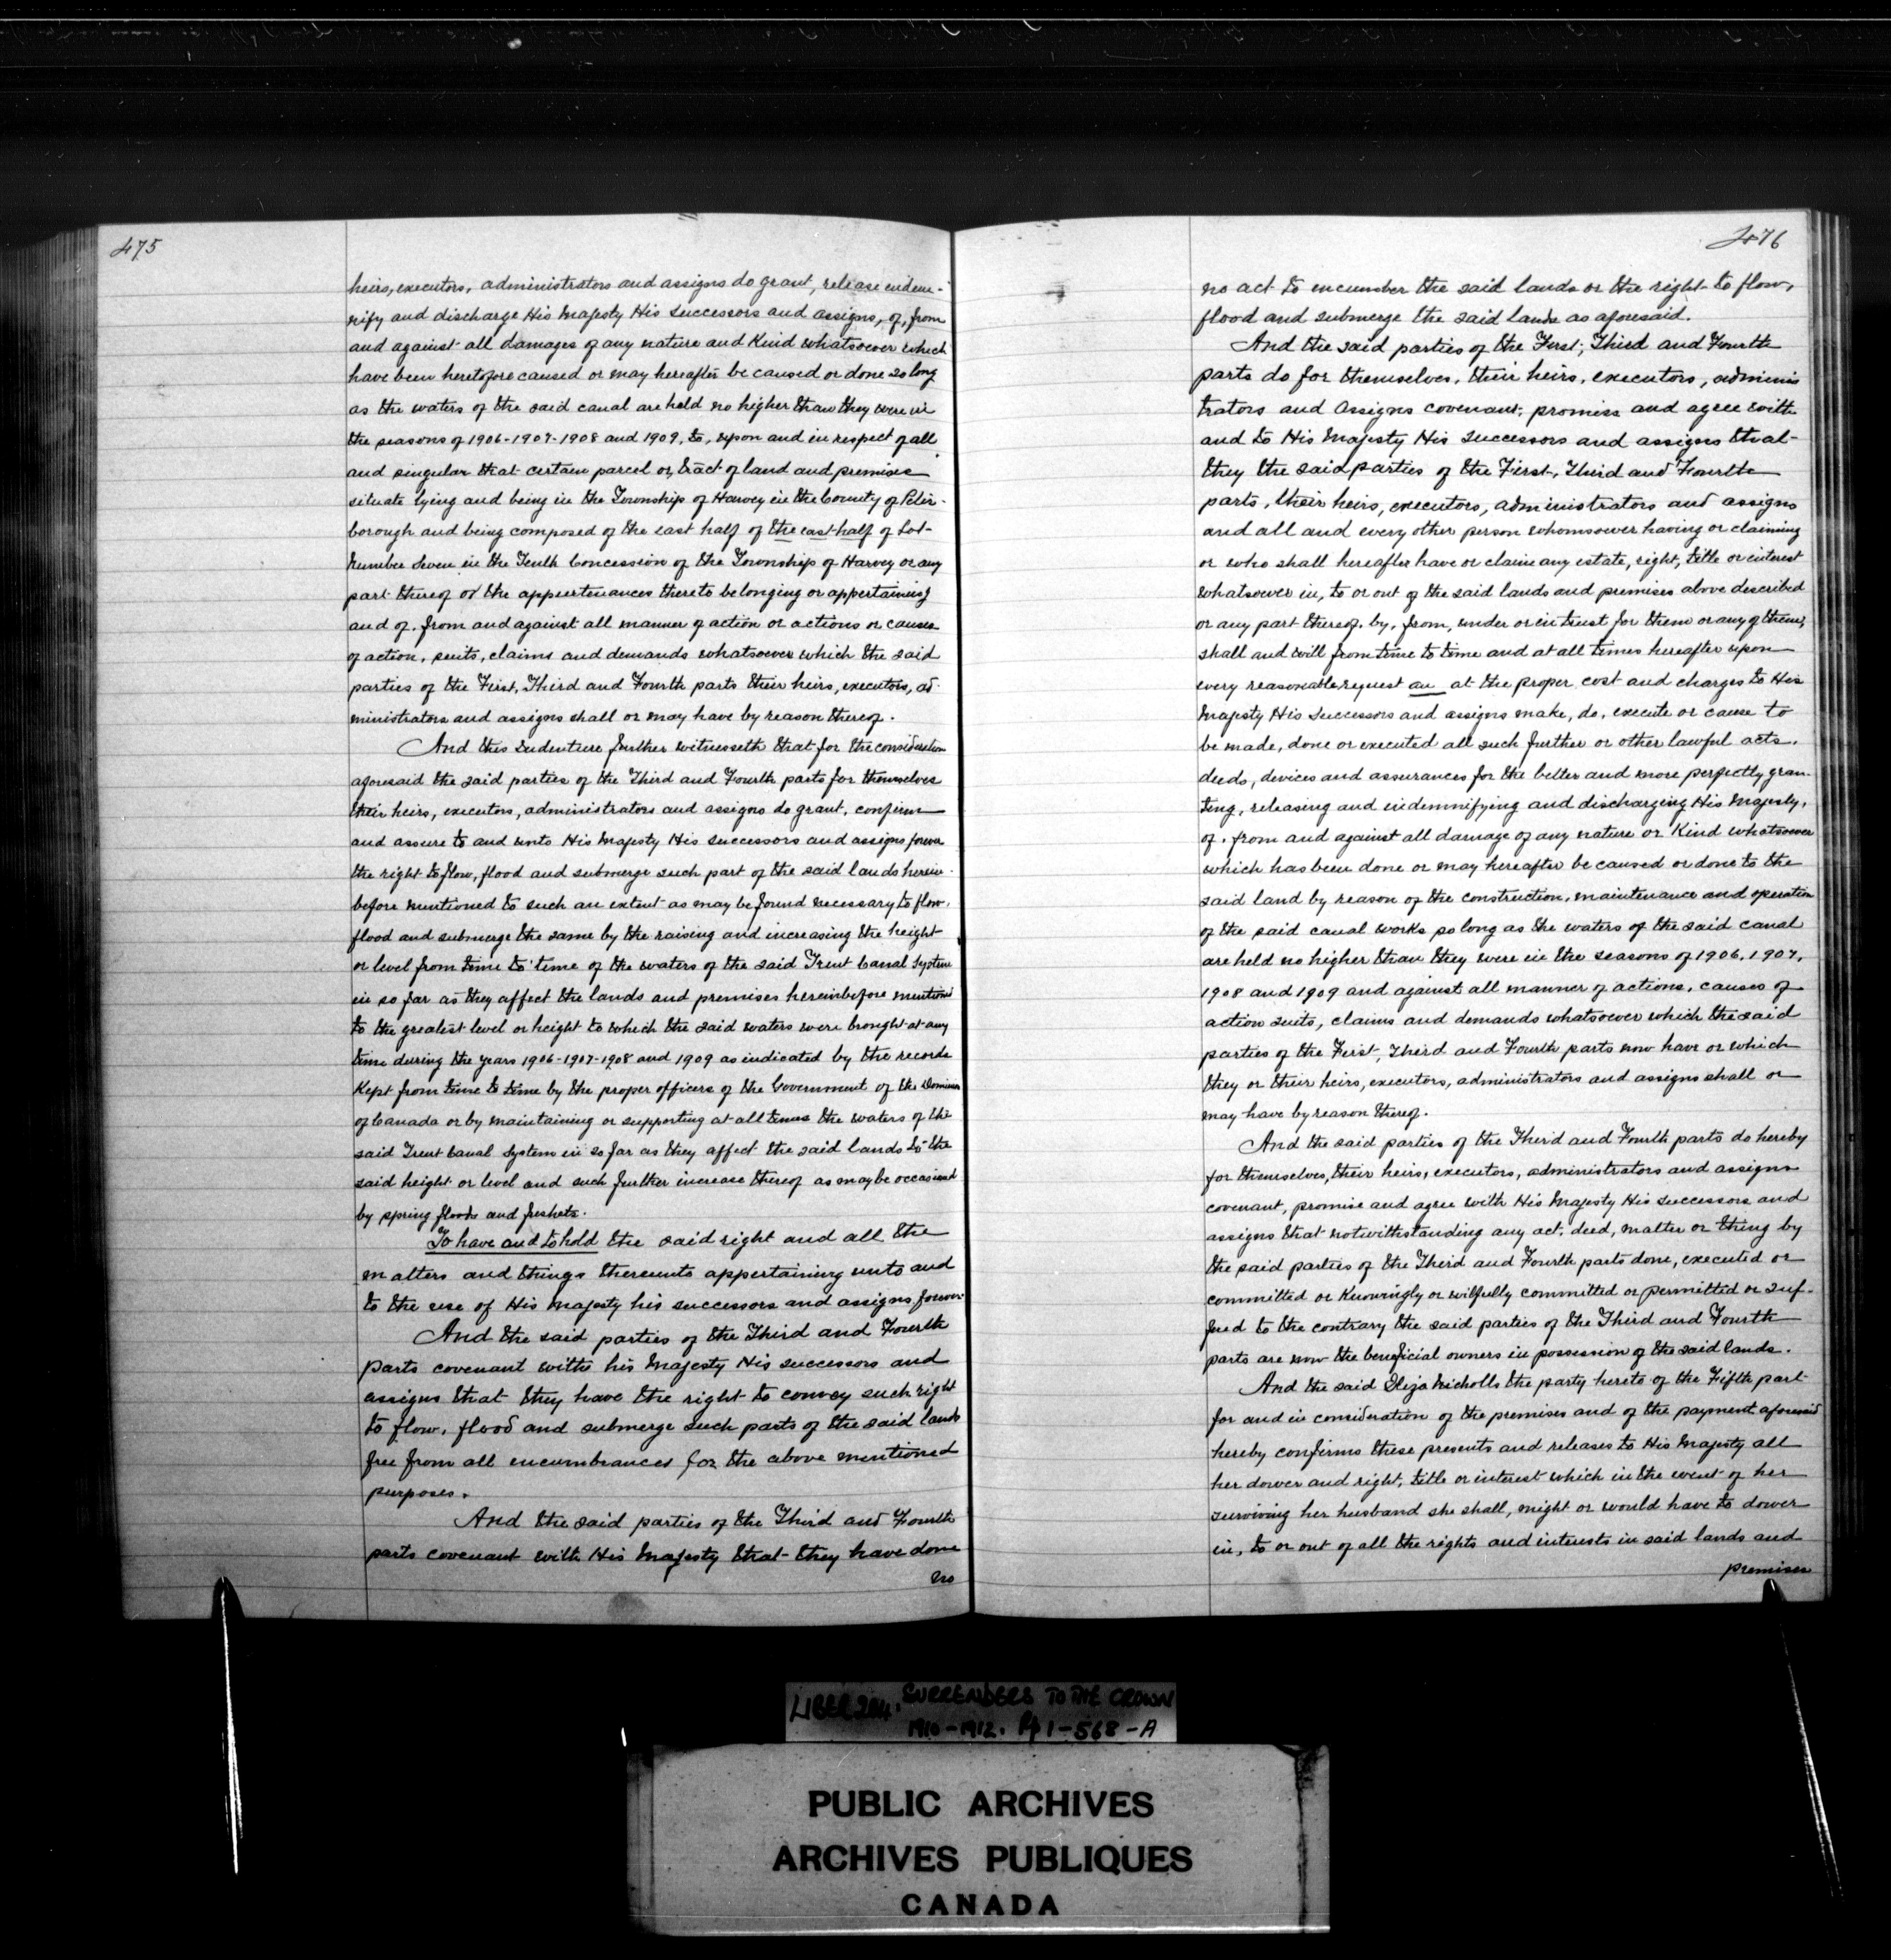 475
heirs, executors, administrators and assigns do grant, release indem-
nify and discharge His Majesty His Successors and assigns, of, from
and against all damages of any nature and kind whatsoever which
have been heretofore caused or may hereafter be caused or done so long
as the waters of the said canal are held no higher than they were in
the seasons of 1906-1907-1908 and 1909, to, upon and in respect of all
and singular that certain parcel or tract of land and premises
situate lying and being in the Township of Harvey in the County of Peter-
borough and being composed of the east half of the east half of Lot
Number Seven in the Tenth Concession of the Township of Harvey or any
part thereof or the appurtenances thereto belonging or appertaining
and of, from and against all manner of action or actions or causes
of action, suits, claims and demands whatsoever which the said
parties of the First, Third and Fourth parts their heirs, executors, ad-
ministrators and assigns shall or may have by reason thereof.
And this Indenture further witnesseth that for the consideration
aforesaid the said parties of the Third and Fourth parts for themselves
their heirs, executors, administrators and assigns do grant, confirm
and assure to and unto His Majesty His Successors and assigns forever
the right to flow, flood and submerge such part of the said lands herein-
before mentioned to such an extent as may be found necessary to flow,
flood and submerge the same by the raising and increasing the height
or level from time to time of the waters of the said Trent Canal System
in so far as they affect the lands and premises hereinbefore mentioned
to the greatest level or height to which the said waters were brought at any
time during the years 1906-1907-1908 and 1909 as indicated by the records
kept from time to time by the proper officers of the Government of the Dominion
of Canada or by maintaining or supporting at all times the waters of the
said Trent Canal System in so far as they affect the said lands to the
said height or level and such further increase thereof as may be occasioned
by spring floods and freshets.
To have and to hold the said right and all the
matters and things thereunto appertaining unto and
to the use of His Majesty his successors and assigns forever.
And the said parties of the Third and Fourth
parts covenant with his Majesty His successors and
assigns that they have the right to convey such right
to flow, flood and submerge such parts of the said lands
free from all encumbrances for the above mentioned
purposes.
And the said parties of the Third and Fourth
parts covenant with His Majesty that they have done
no
476
no act to encumber the said lands or the right to flow,
flood and submerge the said lands as aforesaid.
And the said parties of the First, Third and Fourth
parts do for themselves, their heirs, executors, adminis
trators and assigns covenant, promise and agree with
and to His Majesty His Successors and assigns that
they the said parties of the First, Third and Fourth
parts, their heirs, executors, administrators and assigns
and all and every other person whomsoever having or claiming
or who shall hereafter have or claim any estate, right, title or interest
whatsoever in, to or out of the said lands and premises above described
or any part thereof, by, from, under or in trust for them or any of them,
shall and will from time to time and at all times hereafter upon
every reasonable request an at the proper cost and charges to His
Majesty His Successors and assigns make, do, execute or cause to
be made, done or executed all such further or other lawful acts,
deeds, devices and assurances for the better and more perfectly gran-
ting, releasing and indemnifying and discharging His Majesty,
of, from and against all damage of any nature or kind whatsoever
which has been done or may hereafter be caused or done to the
said land by reason of the construction, maintenance and operation
of the said canal works so long as the waters of the said canal
are held no higher than they were in the seasons of 1906, 1907,
1908 and 1909 and against all manner of actions, causes of
action suits, claims and demands whatsoever which the said
parties of the First, Third and Fourth parts now have or which
they or their heirs, executors, administrators and assigns shall or
may have by reason thereof.
And the said parties of the Third and Fourth parts do hereby
for themselves, their heirs, executors, administrators and assigns
covenant, promise and agree with His Majesty His Successors and
assigns that notwithstanding any act, deed, matter or thing by
the said parties of the Third and Fourth parts done, executed or
committed or knowingly or wilfully committed or permitted or suf-
fred to the contrary the said parties of the Third and Fourth
parts are now the beneficial owners in possession of the said lands.
And the said Eliza Nicholls the party hereto of the Fifth part
for and in consideration of the premises and of the payment aforesaid
hereby confirms these presents and releases to His Majesty all
her dower and right, title or interest which in the event of her
surviving her husband she shall, might or would have to dower
in, to or out of all the rights and interests in said lands and
premises
LIBER 284. SURRENDERS TO THE CROWN
1910-1912. Pp 1-568-A
PUBLIC ARCHIVES
ARCHIVES PUBLIQUES
CANADA